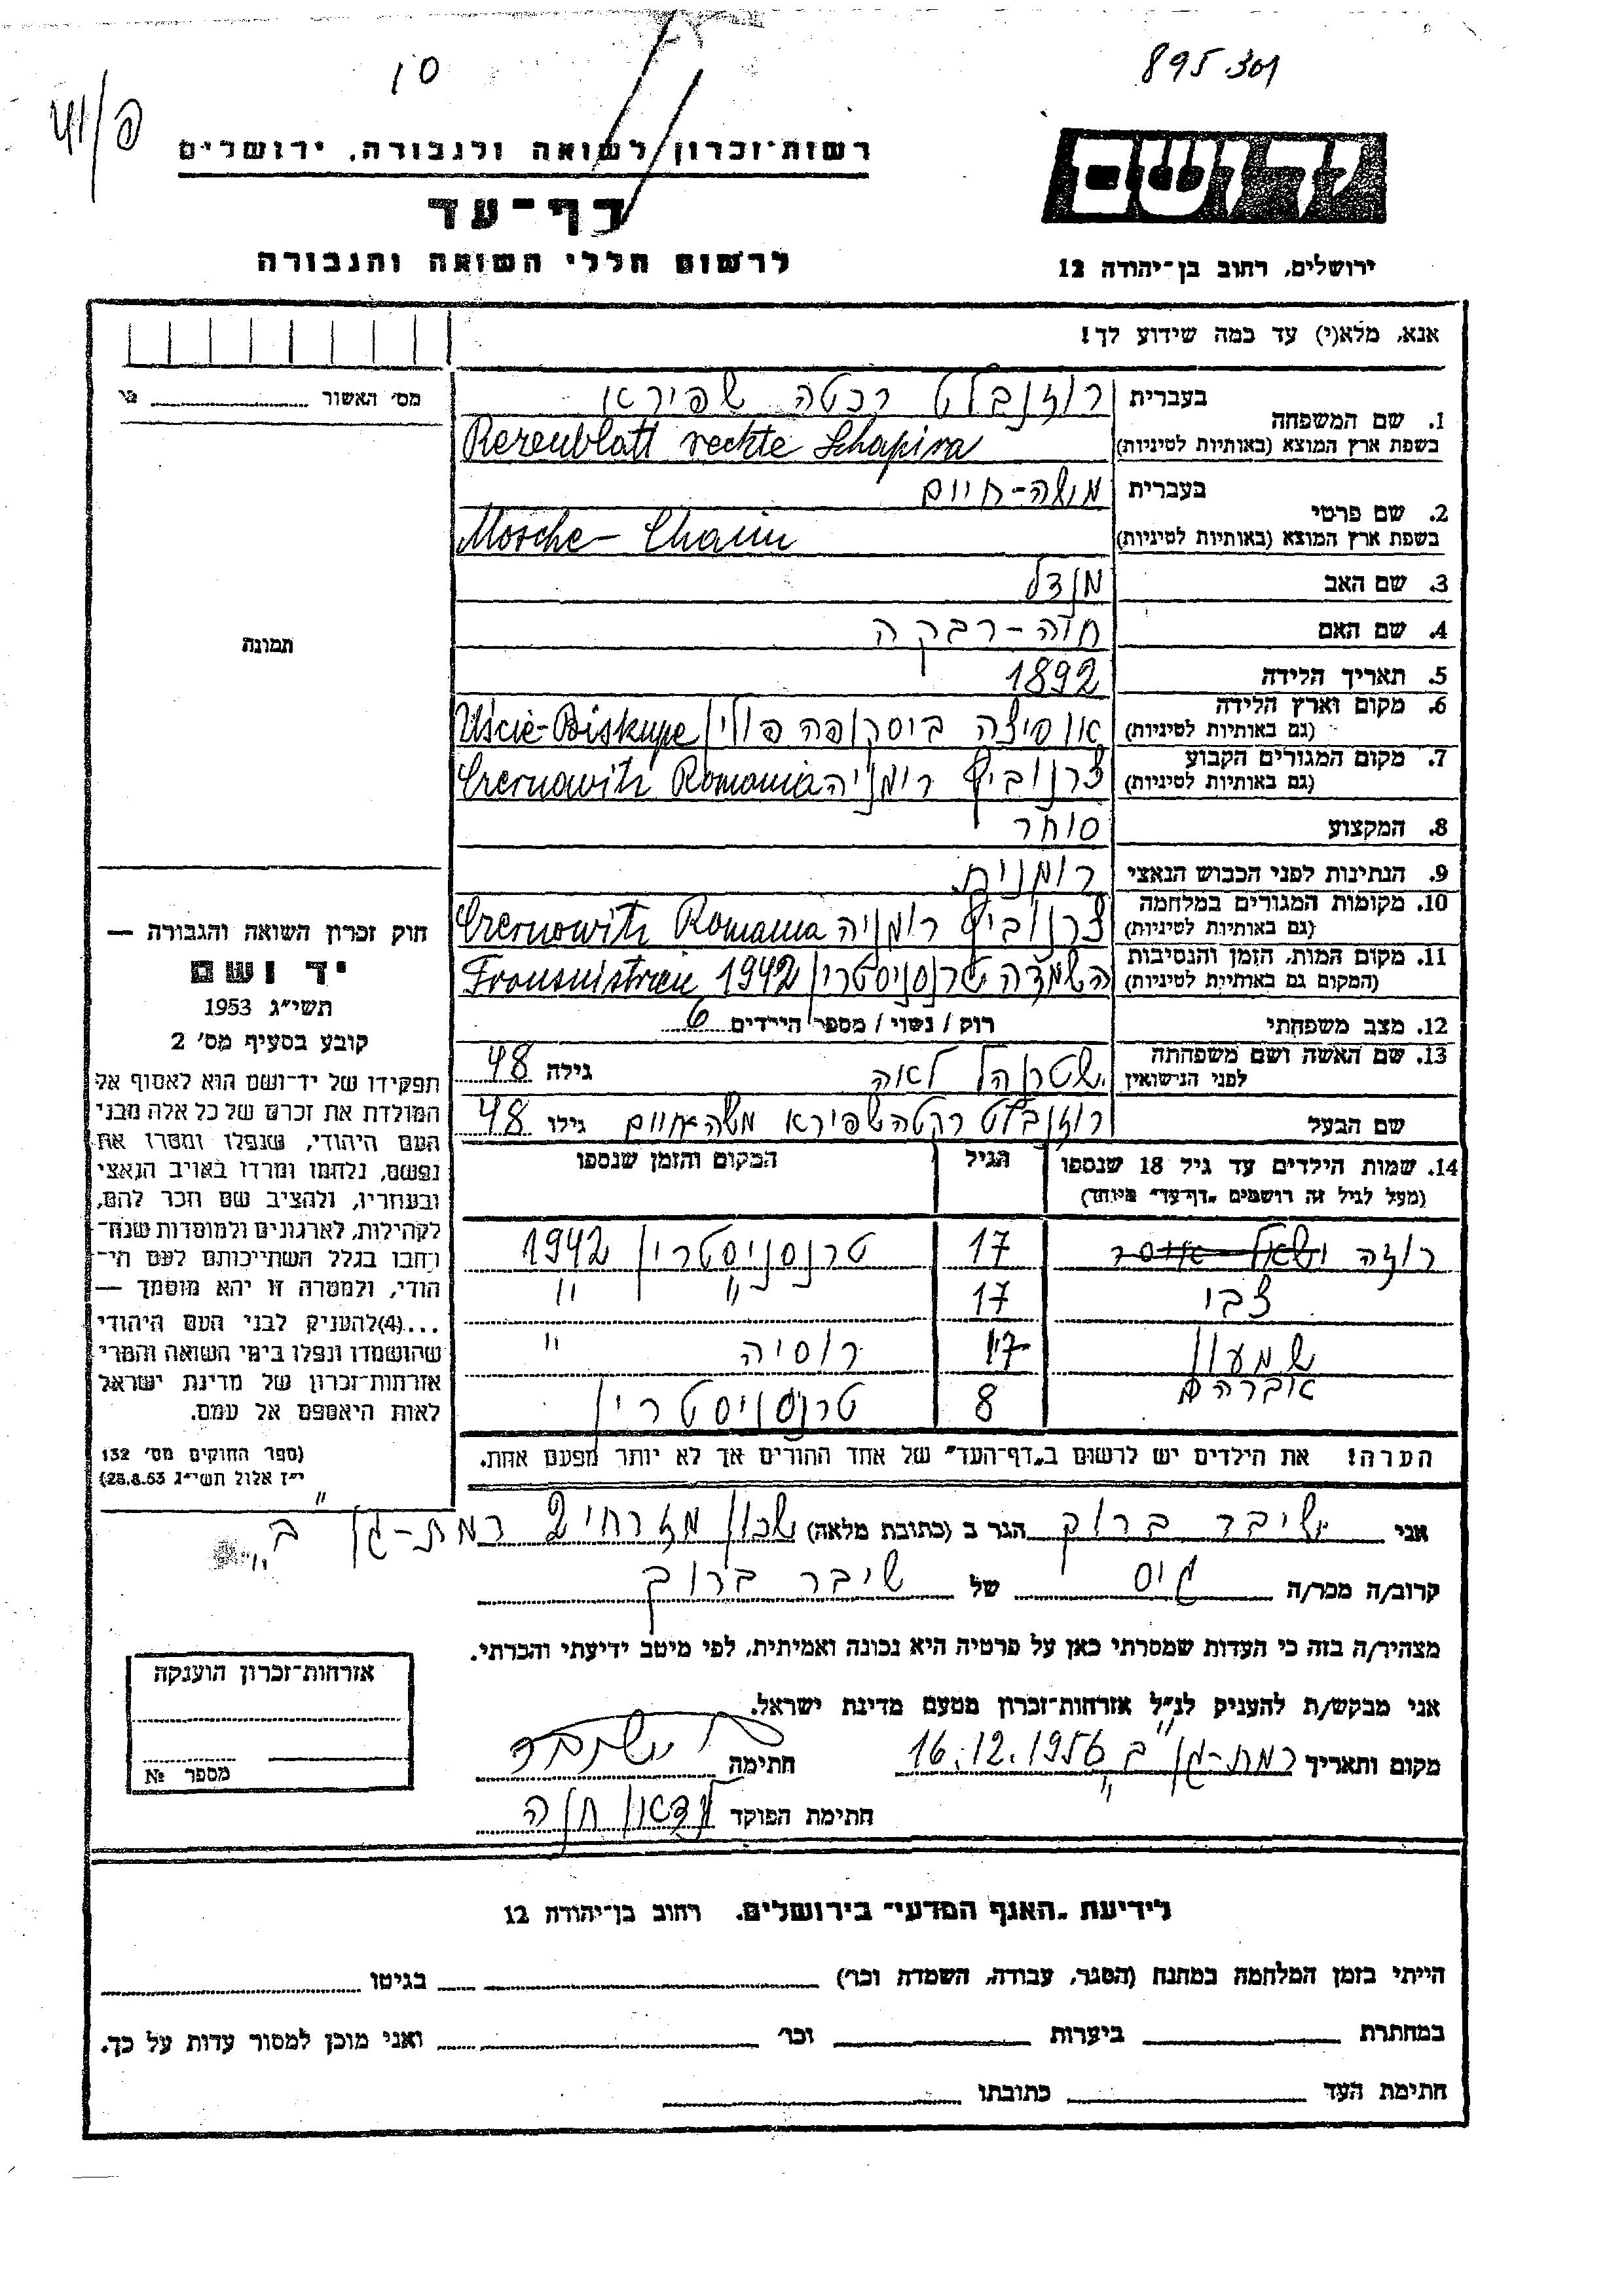 10
895.301
פ/41
רשות־זכרון לשואה ולגבורה, ירושלים
דף־עד
לרשום חללי השואה והגבורה
ידושם
ירושלים, רחוב בן־יהודה 12
אנא, מלא(י) עד כמה שידוע לך!
מס׳ האשור
1. שם המשפחה בעברית רוזנבלט רכטה שפירא
בשפת ארץ המוצא (באותיות לטיניות) Rezenblatt rechte Schapira
2. שם פרטי בעברית משה-חיים
בשפת ארץ המוצא (באותיות לטיניות) Mosche- Chaim
3. שם האב מנדל
4. שם האם חוה-רבקה
תמונה
5. תאריך הלידה 1892
6. מקום וארץ הלידה (גם באותיות לטיניות) אוסיצה ביסקופה פולין Uście-Biskupe
7. מקום המגורים הקבוע (גם באותיות לטיניות) צרנוביץ רומניה Czernowitz Romania
8. המקצוע סוחר
9. הנתינות לפני הכבוש הנאצי רומנית
10. מקומות המגורים במלחמה (גם באותיות לטיניות) צרנוביץ רומניה Czernowitz Romania
11. מקום המות, הזמן והנסיבות (המקום גם באותיות לטיניות) השמדה טרנסניסטרין 1942 Transnistrien
12. מצב משפחתי רוק / נשוי / מספר הילדים 6
13. שם האשה ושם משפחתה לפני הנישואין שטרנהל לאה גילה 48
שם הבעל רוזנבלט רקטה שפירא משה חיים גילו 48
14. שמות הילדים עד גיל 18 שנספו (מעל לגיל זה רושמים "דף־עד" מיוחד) הגיל המקום והזמן שנספו
רוזה 17 טרנסניסטרין 1942
צבי 17 " "
שמעון 17 רוסיה "
אברהם 8 טרנסניסטרין
הערה! את הילדים יש לרשום ב"דף־העד" של אחד ההורים אך לא יותר מפעם אחת.
חוק זכרון השואה והגבורה —
יד ושם
תשי״ג 1953
קובע בסעיף מס׳ 2
תפקידו של יד־ושם הוא לאסוף אל
המולדת את זכרם של כל אלה מבני
העם היהודי, שנפלו ומסרו את
נפשם, נלחמו ומרדו באויב הנאצי
ובעוזריו, ולהציב שם וזכר להם,
לקהילות, לארגונים ולמוסדות שנח־
רבו בגלל השתייכותם לעם הי־
הודי, ולמטרה זו יהא מוסמך —
...(4) להעניק לבני העם היהודי
שהושמדו ונפלו בימי השואה והמרי
אזרחות־זכרון של מדינת ישראל
לאות היאספם אל עמם.
(ספר החוקים מס׳ 132
י״ז אלול תשי״ג 28.8.53)
אני שיבר ברוך הגר ב (כתובת מלאה) שכון מזרחי 2 רמת-גן ב"
קרוב/ה מכר/ה גיס של שיבר ברוך
מצהיר/ה בזה כי העדות שמסרתי כאן על פרטיה היא נכונה ואמיתית, לפי מיטב ידיעתי והכרתי.
אני מבקש/ת להעניק לנ״ל אזרחות־זכרון מטעם מדינת ישראל.
מקום ותאריך רמת-גן ב" 16.12.1956 חתימה
חתימת הפוקד
אזרחות־זכרון הוענקה
מספר №
לידיעת "האגף המדעי" בירושלים, רחוב בן־יהודה 12
הייתי בזמן המלחמה במחנה (הסגר, עבודה, השמדה וכו׳) בגיטו
במחתרת ביערות וכו׳ ואני מוכן למסור עדות על כך.
חתימת העד כתובתו